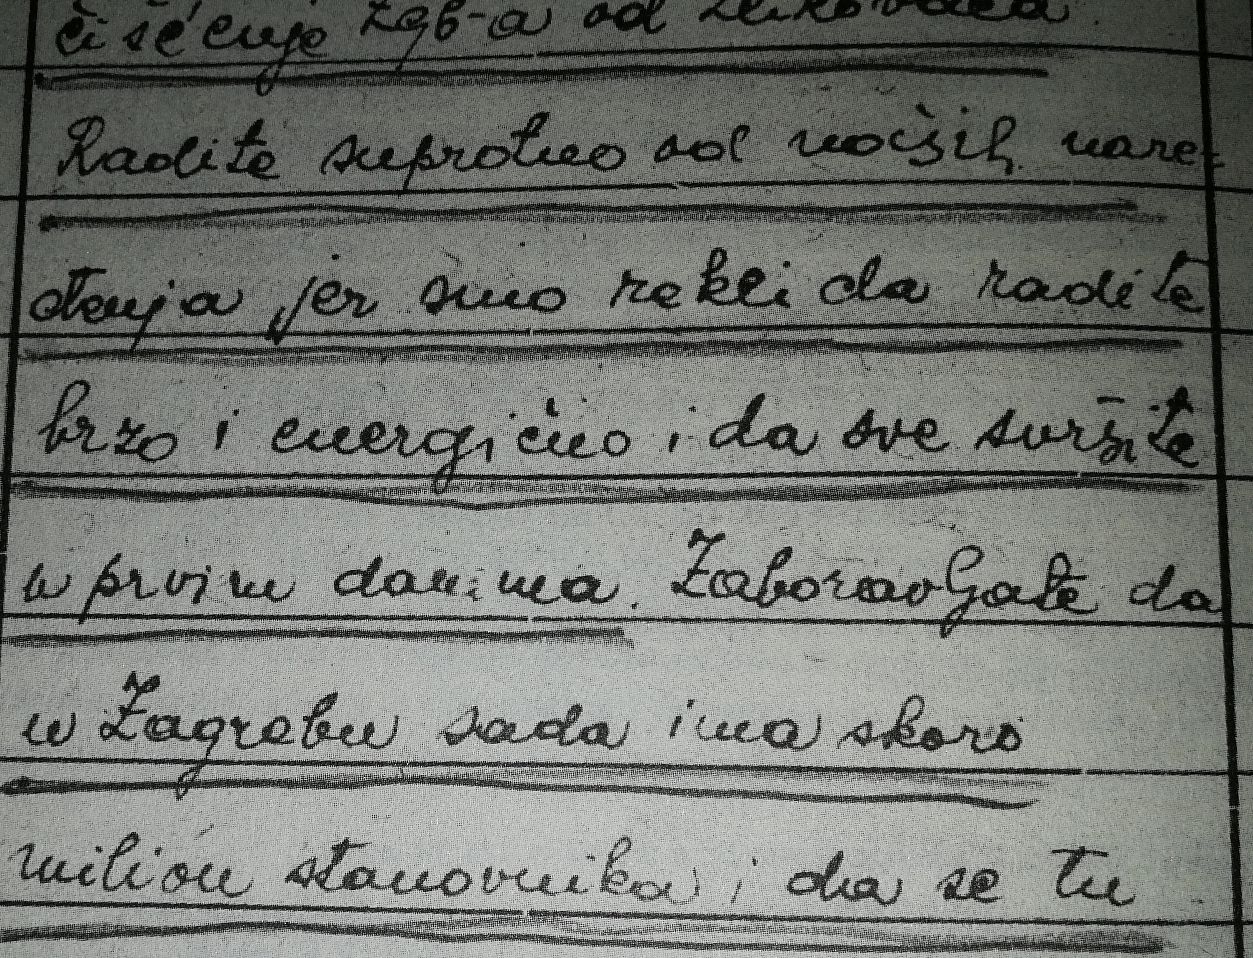 čišćenje Zgb-a od
Radite suprotno od naših nare-
đenja jer smo rekli da radite
brzo i energično i da sve svršite
u prvim danima. Zaboravljate da
u Zagrebu sada ima skoro
milion stanovnika i da se tu